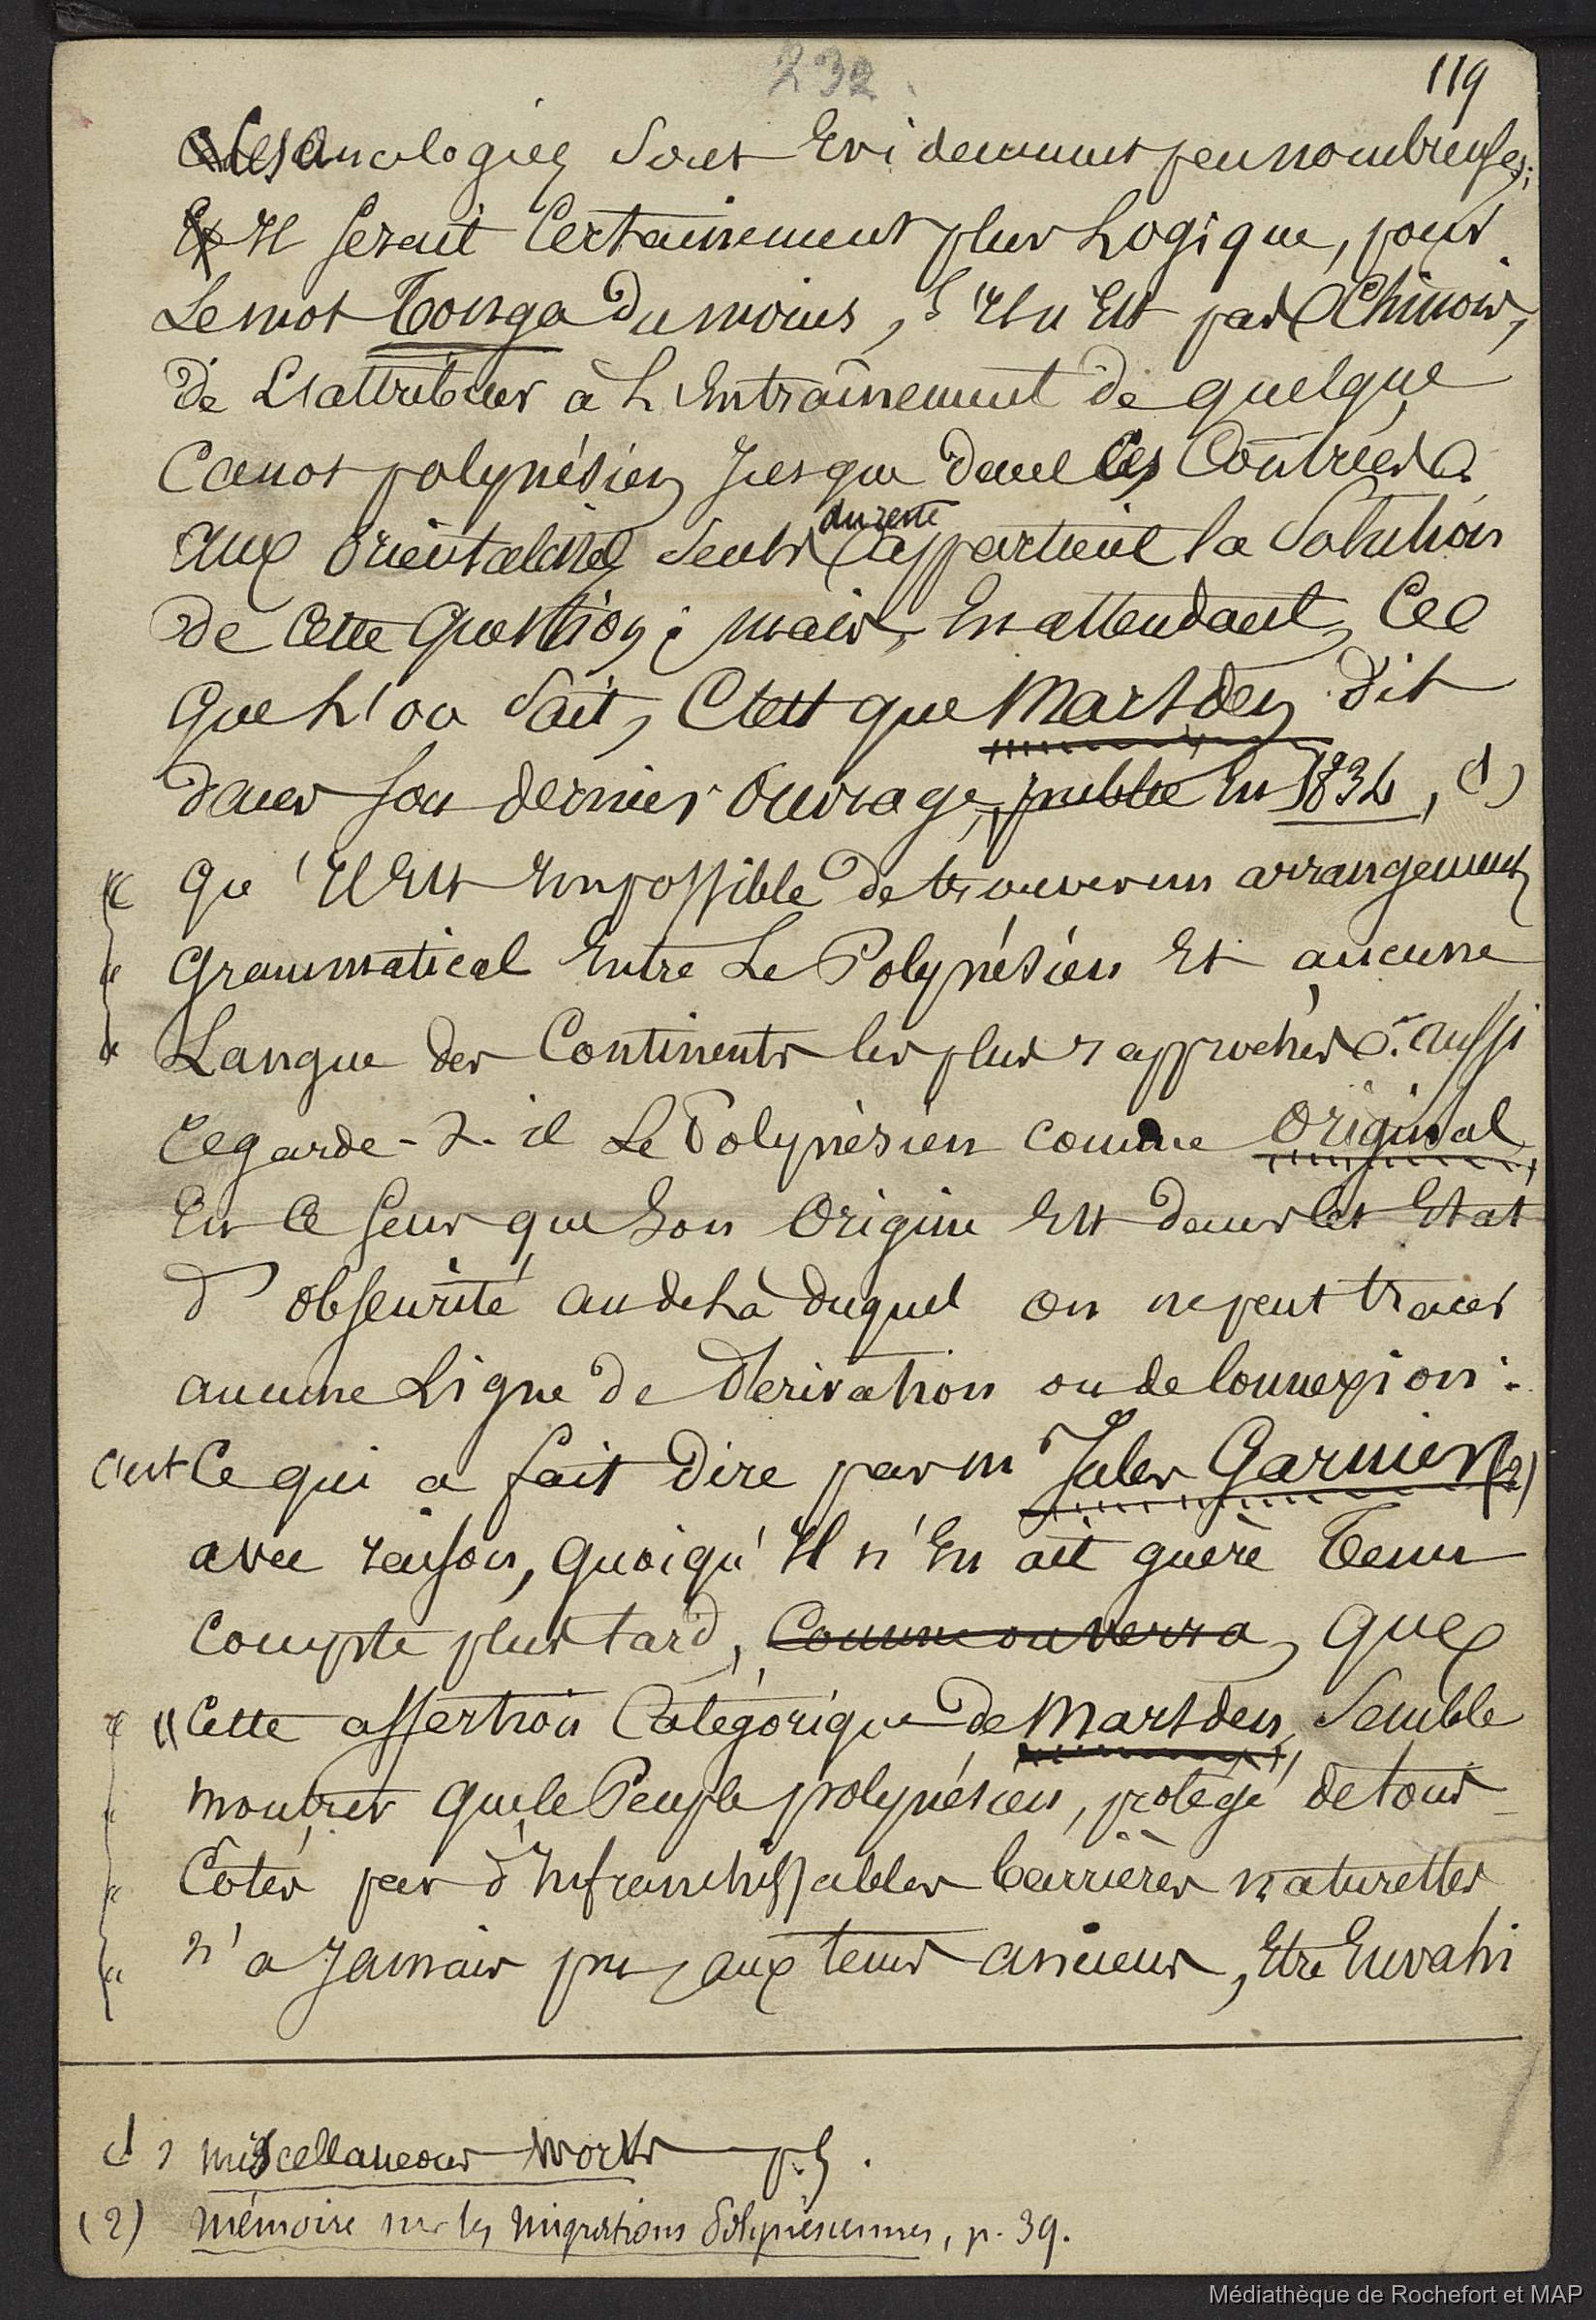 232.
119
Les analogies sont Evidemment peu nombreuses;
Il serait Certainement plus Logique, pour
Le mot Tonga du moins, s'Il n'Est pas Chinois,
De L'attribuer à L'Entraînement de quelque
Canot polynésien Jusque dans ces Contrées.
aux Orientalistes seuls du reste appartient la Solution
De Cette Question; mais, En attendant, Ce
Que L'on Sait, C'est que Marsden dit
dans son dernier Ouvrage, publié En 1834, (1)
" qu'Il Est Impossible de trouver un arrangement
" Grammatical Entre Le Polynésien Et aucune
" Langue des Continents les plus rapprochés. aussi
regarde-t-il Le Polynésien comme Original,
En ce sens que son Origine Est dans cet Etat
d'obscurité au delà duquel on ne peut tracer
aucune Ligne de Dérivation ou de Connexion:
C'est Ce qui a fait Dire par mr Jules Garnier (2)
avec raison, Quoiqu'Il n'En ait guère Tenu
Compte plus tard, Comme on verra, Que
" "Cette assertion Catégorique de Marsden, Semble
" montrer Que le Peuple polynésien, protégé de tous
" Côtés par d'Infranchissables barrières naturelles
" n'a Jamais pu, aux tems anciens, Etre Envahi
(1) Miscellaneous Works p. 5.
(2) Mémoire sur les Migrations Polynésiennes, p. 39.
Médiathèque de Rochefort et MAP